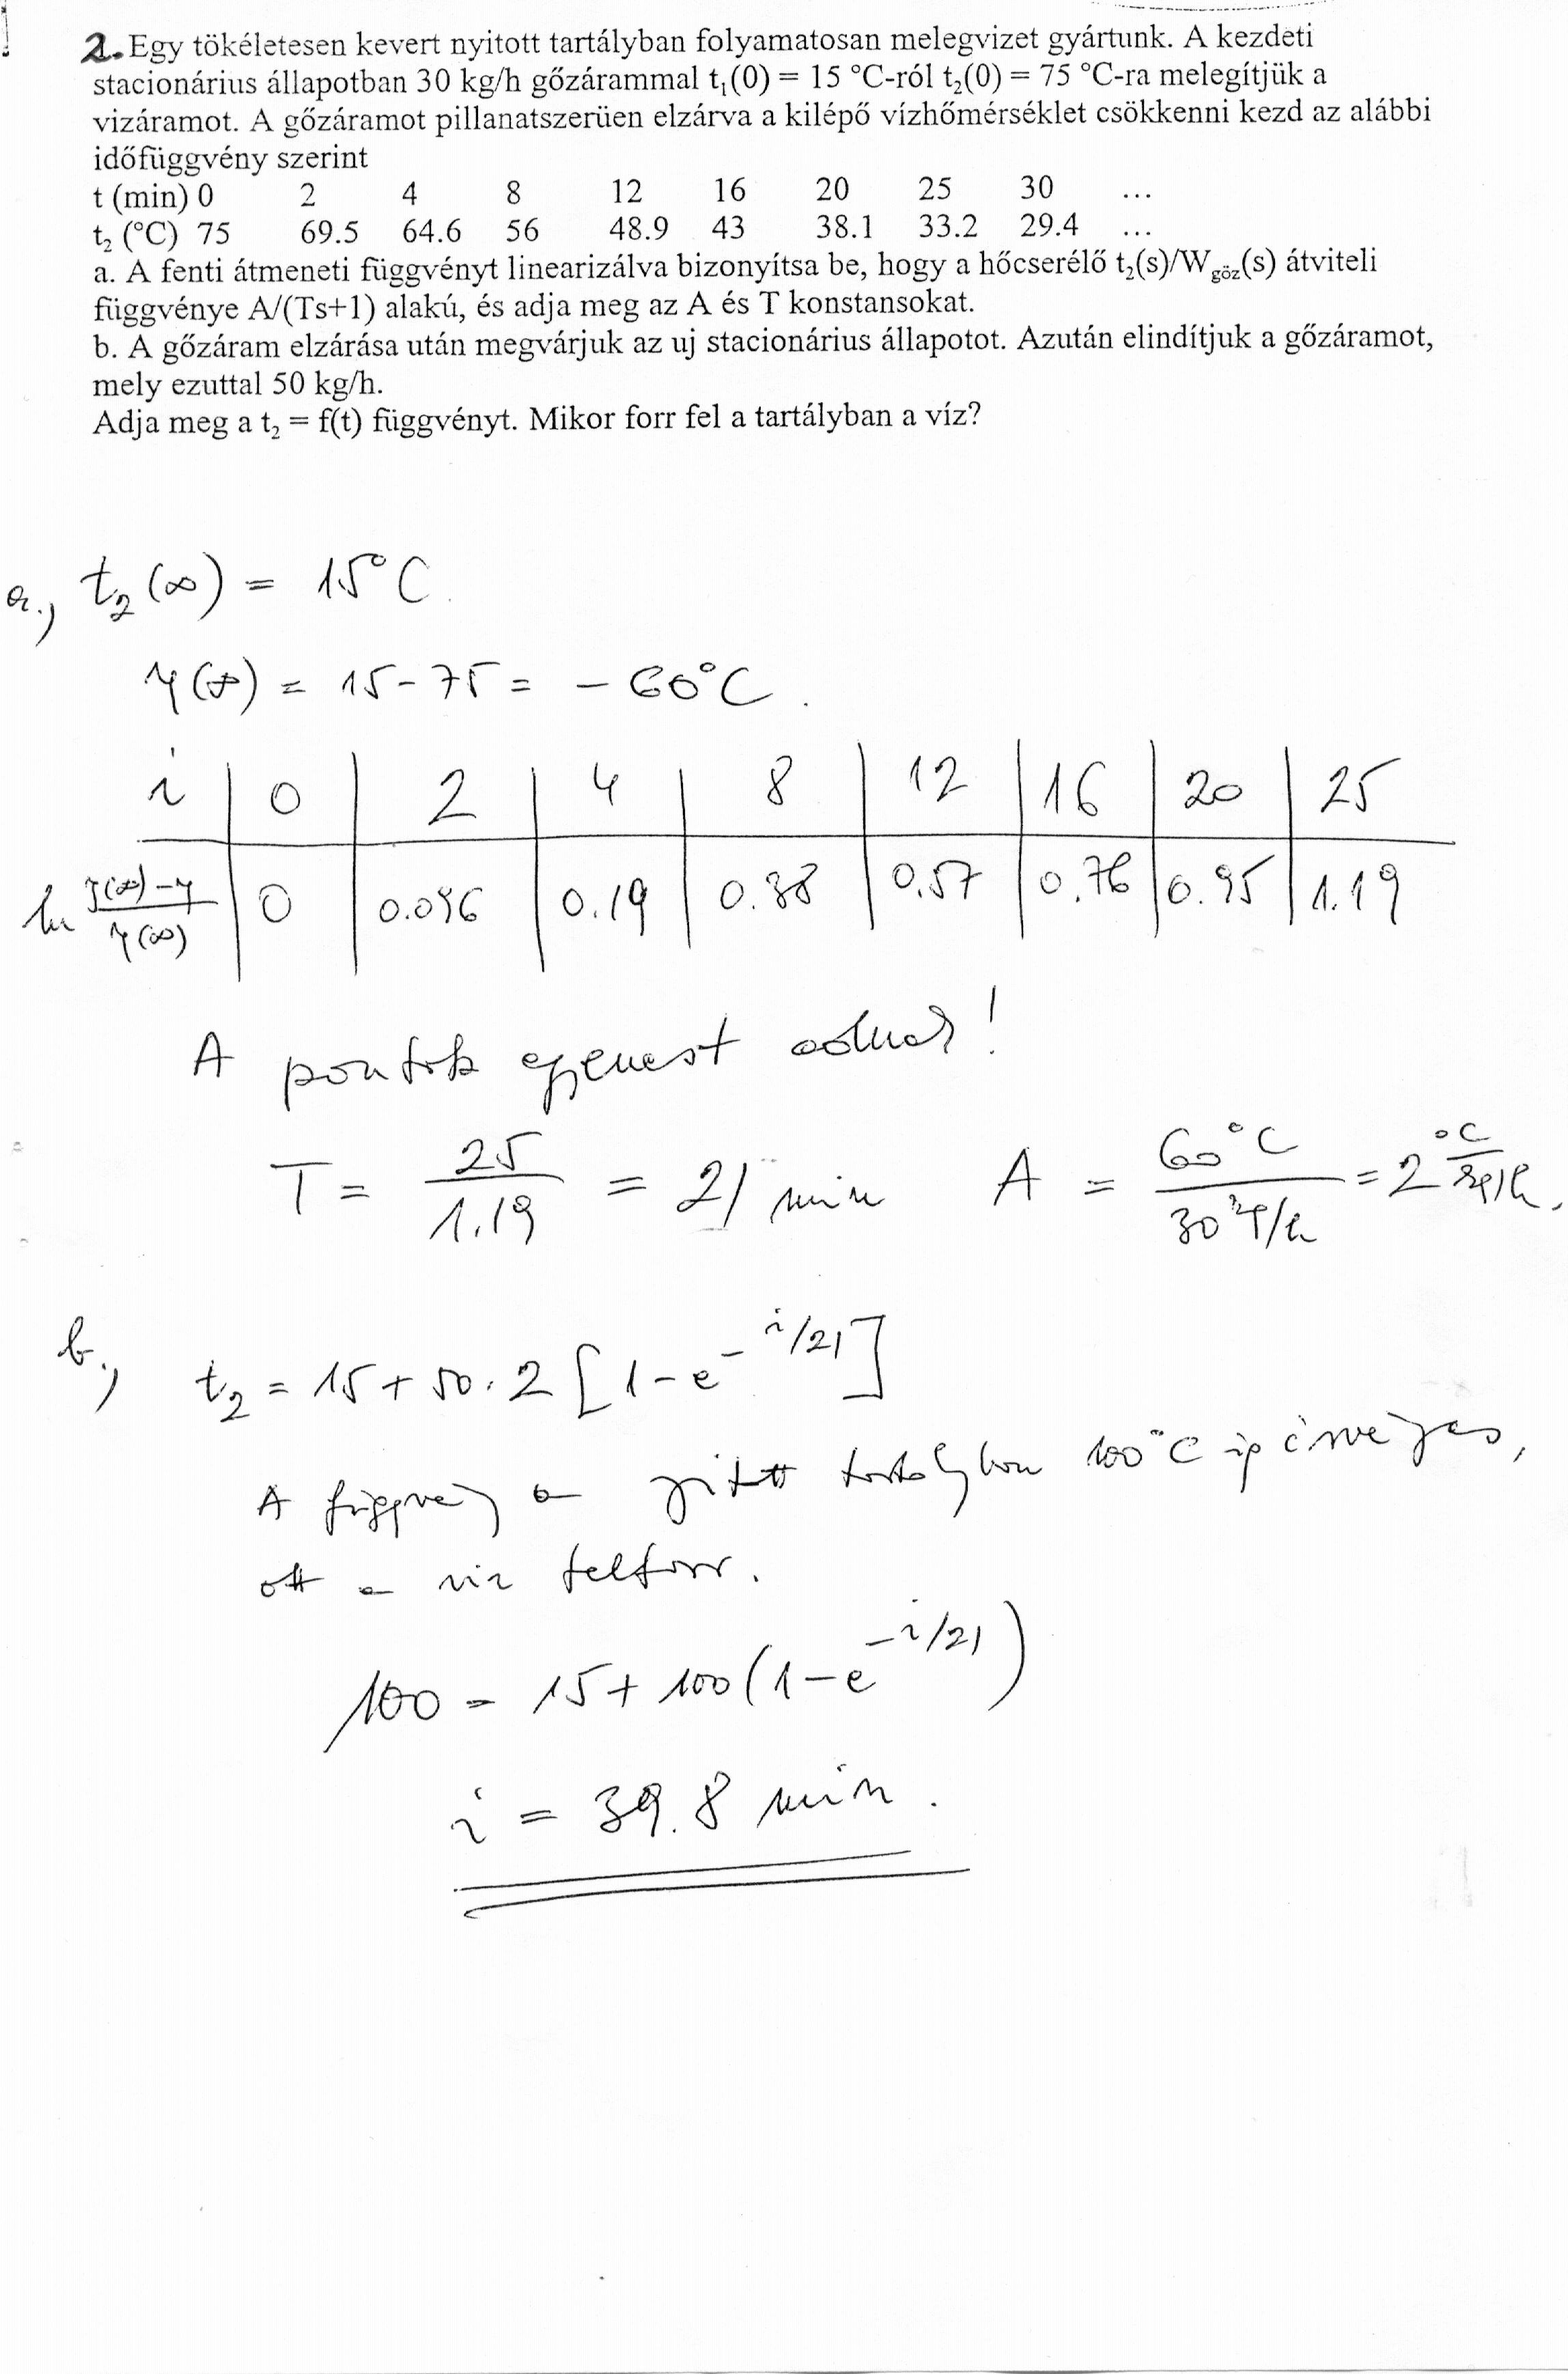 2. Egy tökéletesen kevert nyitott tartályban folyamatosan melegvizet gyártunk. A kezdeti
stacionárius állapotban 30 kg/h gőzárammal t₁(0) = 15 °C-ról t₂(0) = 75 °C-ra melegítjük a
vizáramot. A gőzáramot pillanatszerüen elzárva a kilépő vízhőmérséklet csökkenni kezd az alábbi
időfüggvény szerint
t (min) 0 2 4 8 12 16 20 25 30 ...
t₂ (°C) 75 69.5 64.6 56 48.9 43 38.1 33.2 29.4 ...
a. A fenti átmeneti függvényt linearizálva bizonyítsa be, hogy a hőcserélő t₂(s)/Wgöz(s) átviteli
függvénye A/(Ts+1) alakú, és adja meg az A és T konstansokat.
b. A gőzáram elzárása után megvárjuk az uj stacionárius állapotot. Azután elindítjuk a gőzáramot,
mely ezuttal 50 kg/h.
Adja meg a t₂ = f(t) függvényt. Mikor forr fel a tartályban a víz?
a., t₂(∞) = 15°C.
y(∞) = 15-75 = -60°C.
i 0 2 4 8 12 16 20 25
ln (y(∞)-y)/y(∞) 0 0.096 0.19 0.38 0.57 0.76 0.95 1.19
A pontok egyenest adnak!
T = 25/1.19 = 21 min A = 60°C/30 kg/h = 2 °C/kg/h.
b., t₂ = 15 + 50 · 2 [1-e^-i/21]
A függvény a nyitott tartályban 100°C-ig érvényes,
ott a víz felforr.
100 = 15 + 100(1-e^-i/21)
i = 39.8 min.